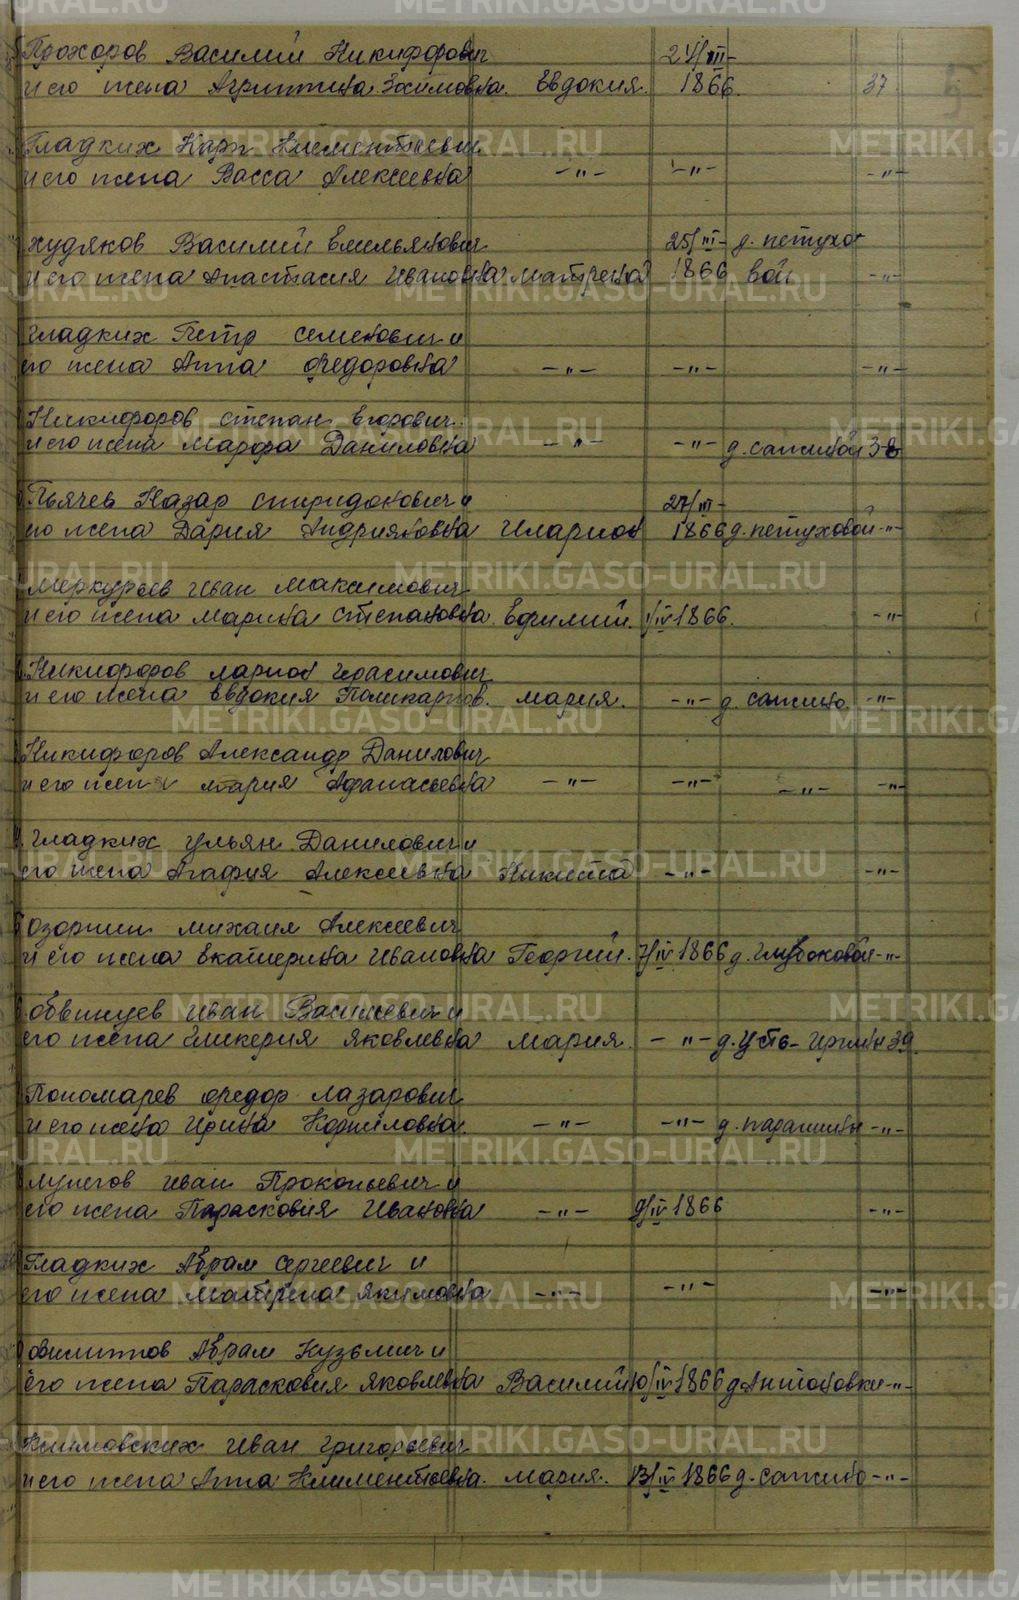 Прохоров Василий Никифорович 24/III-
и его жена Агриппина Зосимовна. Евдокия. 1866. 37
Гладких Карп Климентьевич
и его жена Васса Алексеевна -"- -"- -"-
Худяков Василий Емельянович 25/III- д. Петухо-
и его жена Анастасия Ивановна Матрена 1866 вой -"-
Гладких Петр Семенович и
его жена Анна Федоровна -"- -"- -"-
Никифоров Степан Егорович
и его жена Марфа Даниловна -"- -"- д. Сажиной 38
Пьячев Назар Спиридонович и 27/III-
его жена Дария Андрияновна Иларион 1866 д. Петуховой -"-
Меркурьев Иван Максимович
и его жена Марина Степановна. Ефимий. 1/IV 1866. -"-
Никифоров Ларион Герасимович
и его жена Евдокия Поликарпов. Мария. -"- д. Сажино -"-
Никифоров Александр Данилович
и его жена Мария Афанасьевна -"- -"- -"- -"-
Гладких Ульян Данилович и
его жена Агафия Алексеевна Никита -"- -"-
Озорнин Михаил Алексеевич
и его жена Екатерина Ивановна Георгий. 7/IV 1866 д. Глубоковой -"-
Обвинцев Иван Васильевич и
его жена Гликерия Яковлевна Мария. -"- д. Усть- 39.
Пономарев Федор Лазарович
и его жена Ирина Корниловна. -"- -"- д. -"-
Лулегов Иван Прокопьевич и
его жена Парасковия Ивановна -"- 9/IV 1866 -"-
Гладких Абрам Сергеевич и
его жена Матрена Якимовна -"- -"- -"-
Филиппов Абрам Кузьмич и
его жена Парасковия Яковлевна Василий 10/IV 1866 д. Антоновки -"-
Климовских Иван Григорьевич
и его жена Анна Климентьевна. Мария. 13/IV 1866 д. Сажино -"-
METRIKI.GASO-URAL.RU